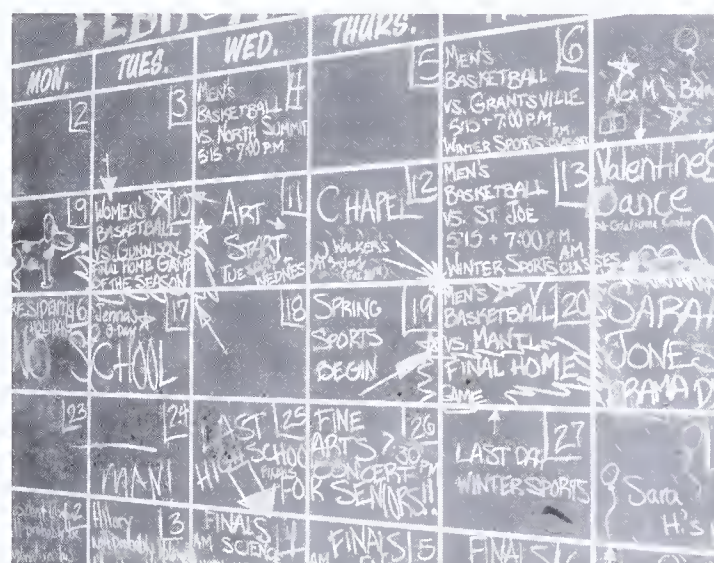 MON.
TUES.
WED.
THURS.
2
3
4
MEN'S
BASKETBALL
VS. NORTH SUMMIT
5:15 + 7:00 P.M.
5
6
MEN'S
BASKETBALL
VS. GRANTSVILLE
5:15 + 7:00 P.M.
WINTER SPORTS
Alex M.'s
9
10
WOMEN'S
BASKETBALL
VS. GUNNISON
FINAL HOME GAME
OF THE SEASON
11
ART
START
12
CHAPEL
WALKERS
13
MEN'S
BASKETBALL
VS. ST. JOE
5:15 + 7:00 P.M.
WINTER SPORTS AM
Valentines
Dance
16
HOLIDAY
NO
17
Jenna's
B-Day
SCHOOL
18
19
SPRING
SPORTS
BEGIN
20
MEN'S
BASKETBALL
VS. MANTI
FINAL HOME
GAME
SARAH
JONES
23
24
MANTI
25
LAST
HIGH SCHOOL
26
FINE
ARTS
7:30 PM
CONCERT
FOR SENIORS!!
27
LAST DAY
WINTER SPORTS
Sara
H.'s
2
3
Hilary
4
FINALS
AM SCIENCE
5
FINALS
AM
6
FINALS